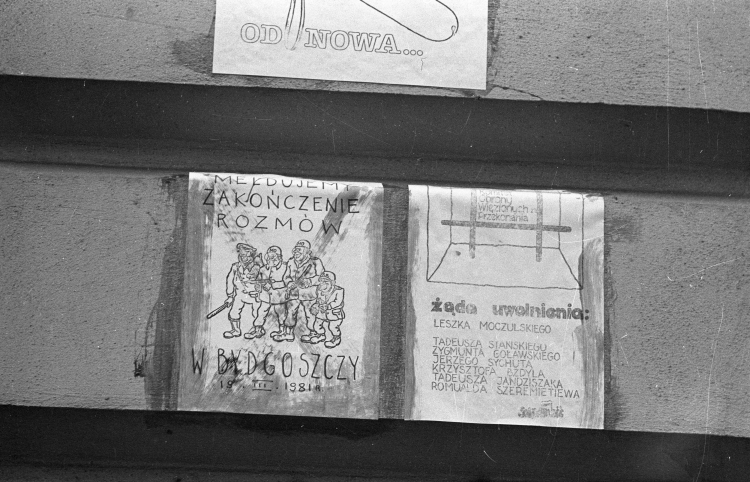 OD NOWA...
MELDUJEMY
ZAKOŃCZENIE
ROZMÓW
W BYDGOSZCZY
19. III. 1981 R
Obrony
Więzionych
Przekonania
żąda uwolnienia:
LESZKA MOCZULSKIEGO
TADEUSZA STAŃSKIEGO
ZYGMUNTA GOŁAWSKIEGO
JERZEGO SYCHUTA
KRZYSZTOFA BZDYLA
TADEUSZA JANDZISZAKA
ROMUALDA SZEREMIETIEWA